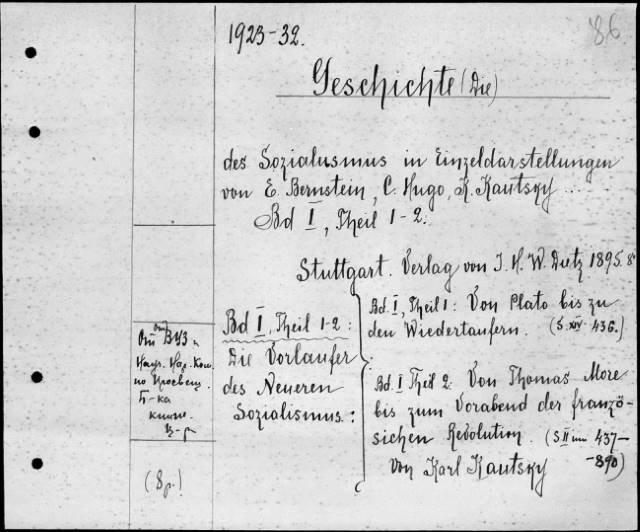 1923-32.
86
Geschichte (Die)
des Sozialusmus in Einzeldarstellungen
von E. Bernstein, C. Hugo, K. Kautsky
Bd I, Theil 1-2.
Stuttgart. Verlag von J. H. W. Dietz 1895. 8°
Bd. I, Theil 1: Von Plato bis zu
den Wiedertaufern. (S. XIV 436.)
Bd I, Theil 1-2:
Die Vorlaufer
des Neueren
Sozialismus:
Bd. I Theil 2: Von Thomas More
bis zum Vorabend der französ-
sichen Revolution. (S II 437-
-890)
Von Karl Kautsky
От ВУЗ
Нар. Ком.
по Просвещ.
Б-ка
книг.
(8 р.)